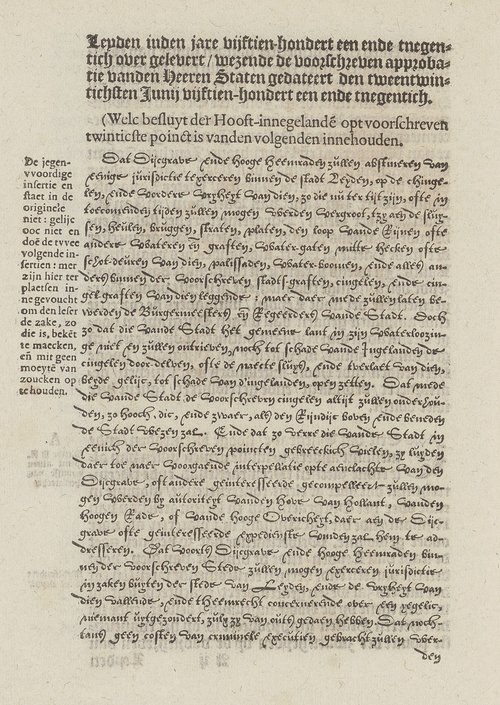 Leyden inden jare vijftien-hondert een ende tnegen-
tich over gelevert / wezende de voorschreven approba-
tie vanden Heeren Staten gedateert den tweentwin-
tichsten Junij vijftien-hondert een ende tnegentich.
(Welc besluyt der Hooft-innegelandē opt voorschreven
twintichste poinct is vanden volgenden innehouden.
De jegen-
vvoordige
insertie en
staet in de
originele
niet: gelijc
ooc niet en
doē de tvvee
volgende in-
sertien: mer
zijn hier ter
plaetsen in-
ne gevoucht
om den leser
de zake, zo
die is, bekēt
te maecken,
eñ mit geen
moeytē van
zoucken op
te houden.
Dat Dijcgrave ende hooge Heemraden züllen abstineren van
eenige jurisdictie texerceren binnen de stadt Leyden, op de cingelen,
ende vordere vryheyt van dien, zo die nu ter tijt zijn, ofte in
toecomenden tijden züllen mogen werden vergroot, tzy aen de slüyssen,
heülen, brüggen, straten, platen, den loop vande Rijnen ofte
andere wateren eñ graften, water-gaten mitte hecken ofte
schot-deüren van dien, palissaden, water-boomen, ende alles anders
binnen der voorschreven stadts-graften, cingelen, ende cingel-graften
van dien leggende: maer daer mede züllen laten bewerden
de Bürgermeesters eñ Regeerders vande Stadt. Doch
zo dat die vande Stadt het gemeene lant in zijn waterloozinge
niet en züllen ontrieven, noch tot schade vande Ingelanden de
cingelen door delven, ofte de naecte slüys, ende tverlaet van dien,
beyde gelijc, tot schade van d'ingelanden, open zetten. Dat mede
die vande Stadt de voorschreven cingelen altijt züllen onderhouden,
zo hooch, dic, ende zwaer, als den Rijndijc boven ende beneden
de Stadt wezen zal. Ende dat zo verre die vande Stadt in
eenich der voorschreven poincten gebreeckich vielen, zy luyden
daer toe naer voorgaende interpellatie opte aenclachte van den
Dijcgrave, oft andere geinteresseerde gecompelleert züllen mogen
werden by autoriteyt vanden Hove van Hollant, vanden
hoogen Rade, of vande hooge Overicheyt, daer aen de Dijcgrave
ofte geinteresseerde expedienste vinden zal hem te adresseren.
Dat voorts Dijcgrave ende hooge Heemraden binnen
der voorschreven Stede züllen mogen exerceren jurisdictie
in zaken buyten der stede van Leyden, ende de vryheyt van
dien vallende, ende theemrecht concernerende over een yegelic,
niemant uytgezondert, zulx zy van outs gedaen hebben. Dat nochtans
geen costen van criminele executien gebracht züllen wer-
den